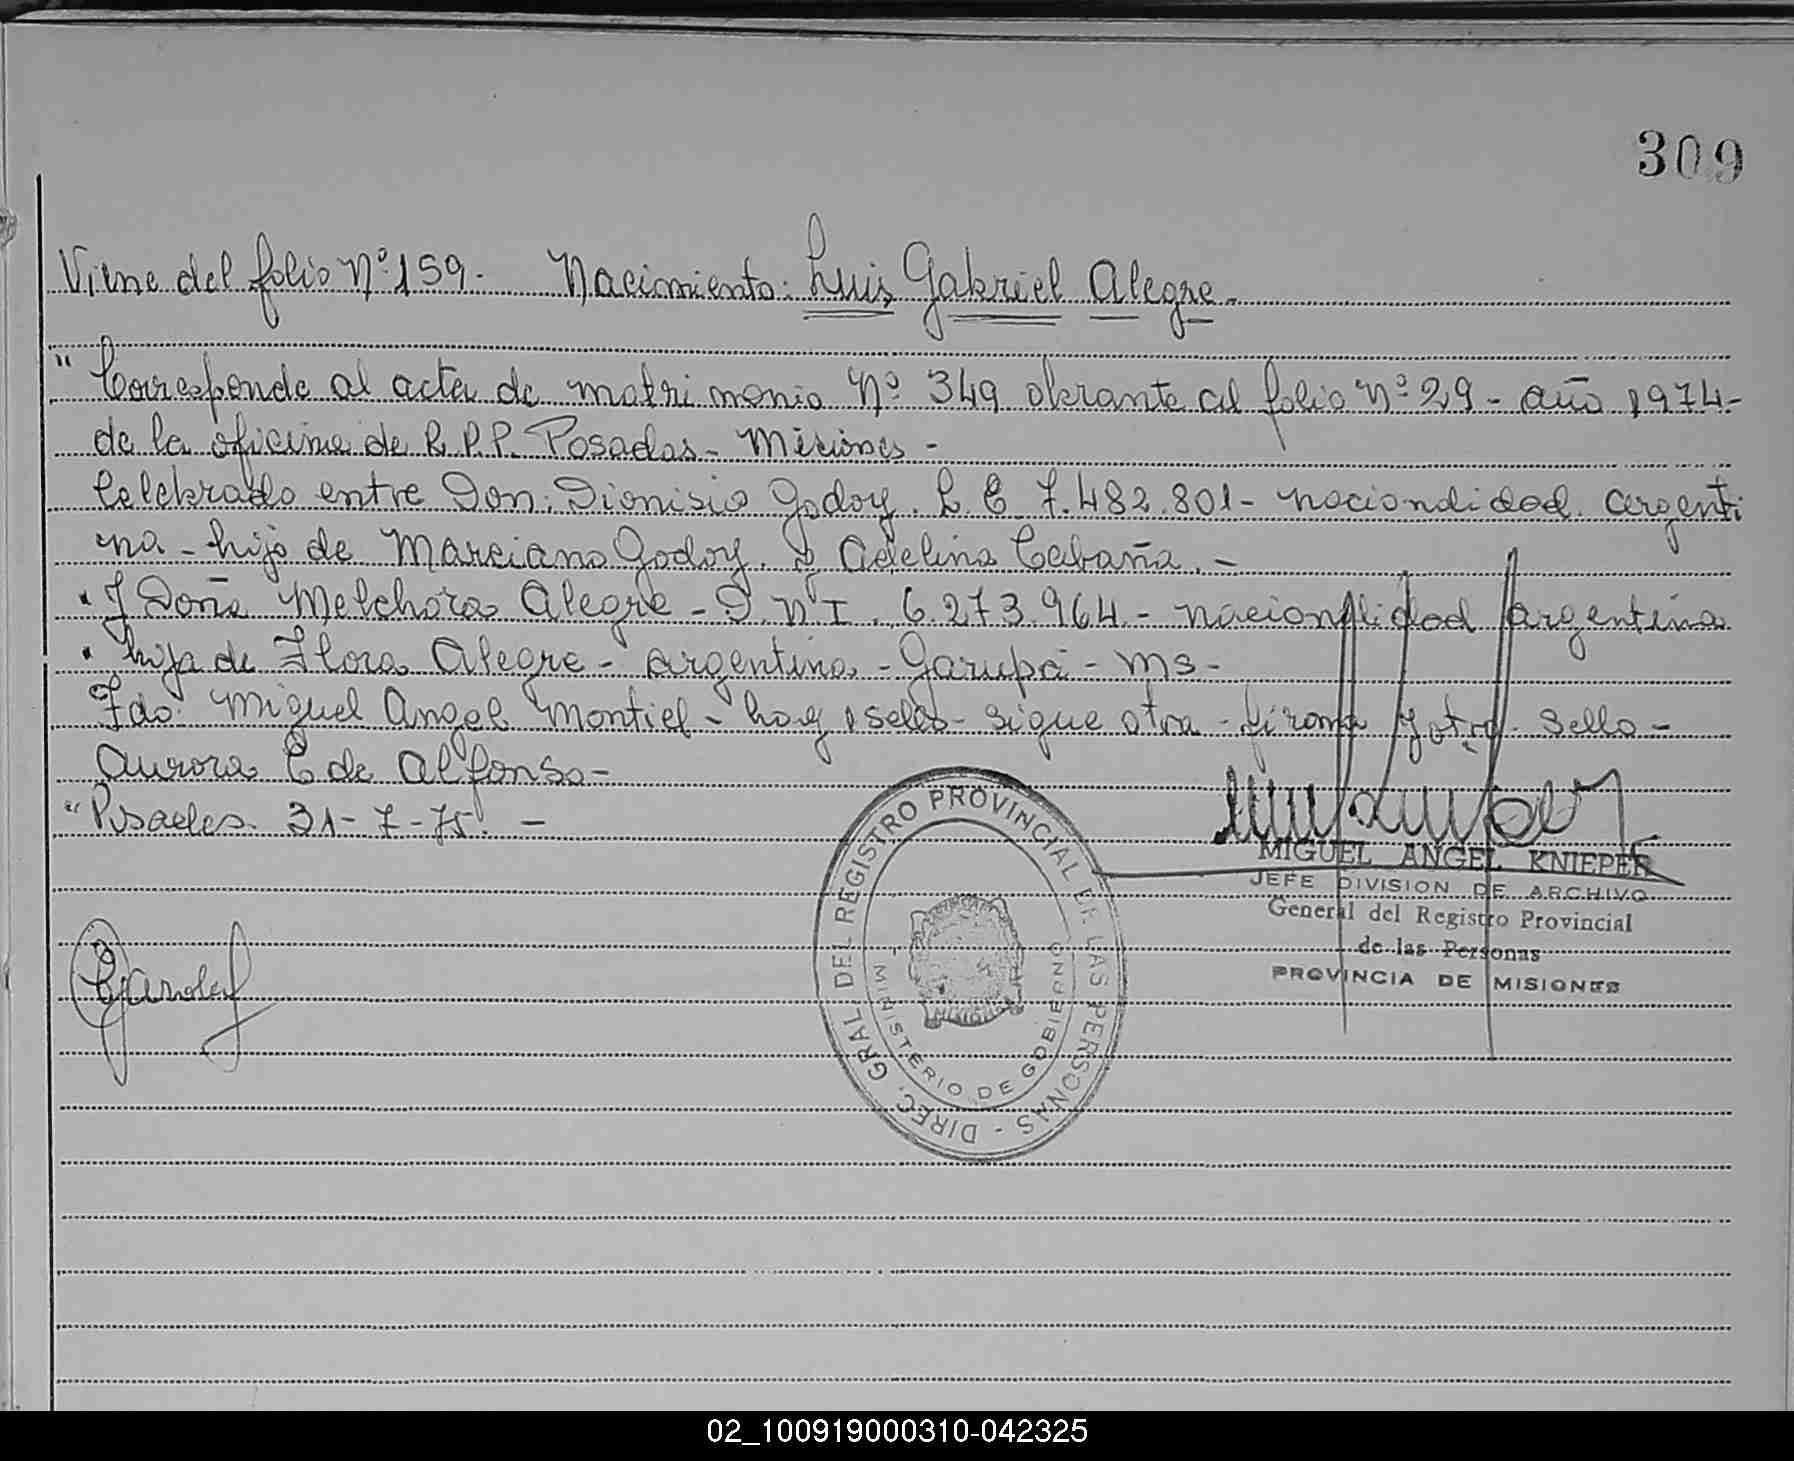 309
Viene del folio Nº 159. Nacimiento: Luis Gabriel Alegre.
"Corresponde al acta de matrimonio Nº 349 obrante al folio Nº 29 - año 1974 -
de la oficina de R.P.P. Posadas - Misiones -
Celebrado entre Don: Dionisio Godoy. L. E 7.482.801 - nacionalidad argenti
na - hijo de Marciano Godoy. y Adelina Cabaña. -
" y Doña Melchora Alegre - D. N. I. 6.273.964 - nacionalidad argentina
" hija de Flora Alegre - argentina - Garupá - Ms -
Fdo. Miguel Angel Montiel - hay sello - sigue otra - firma y otro sello -
Aurora C de Alfonso -
"Posadas 31-7-75. -
MIGUEL ANGEL KNIEPER
JEFE DIVISION DE ARCHIVO
General del Registro Provincial
de las Personas
PROVINCIA DE MISIONES
DIREC. GRAL DEL REGISTRO PROVINCIAL DE LAS PERSONAS -
MINISTERIO DE GOBIERNO
02_100919000310-042325